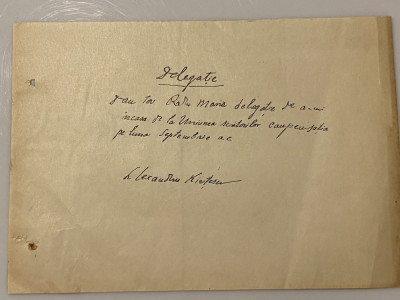 Delegație
Dau tov Radu Maria delegație de a-mi
incasa de la Uniunea scriitorilor compensația
pe luna Septembrie ac
Alexandru Kirițescu